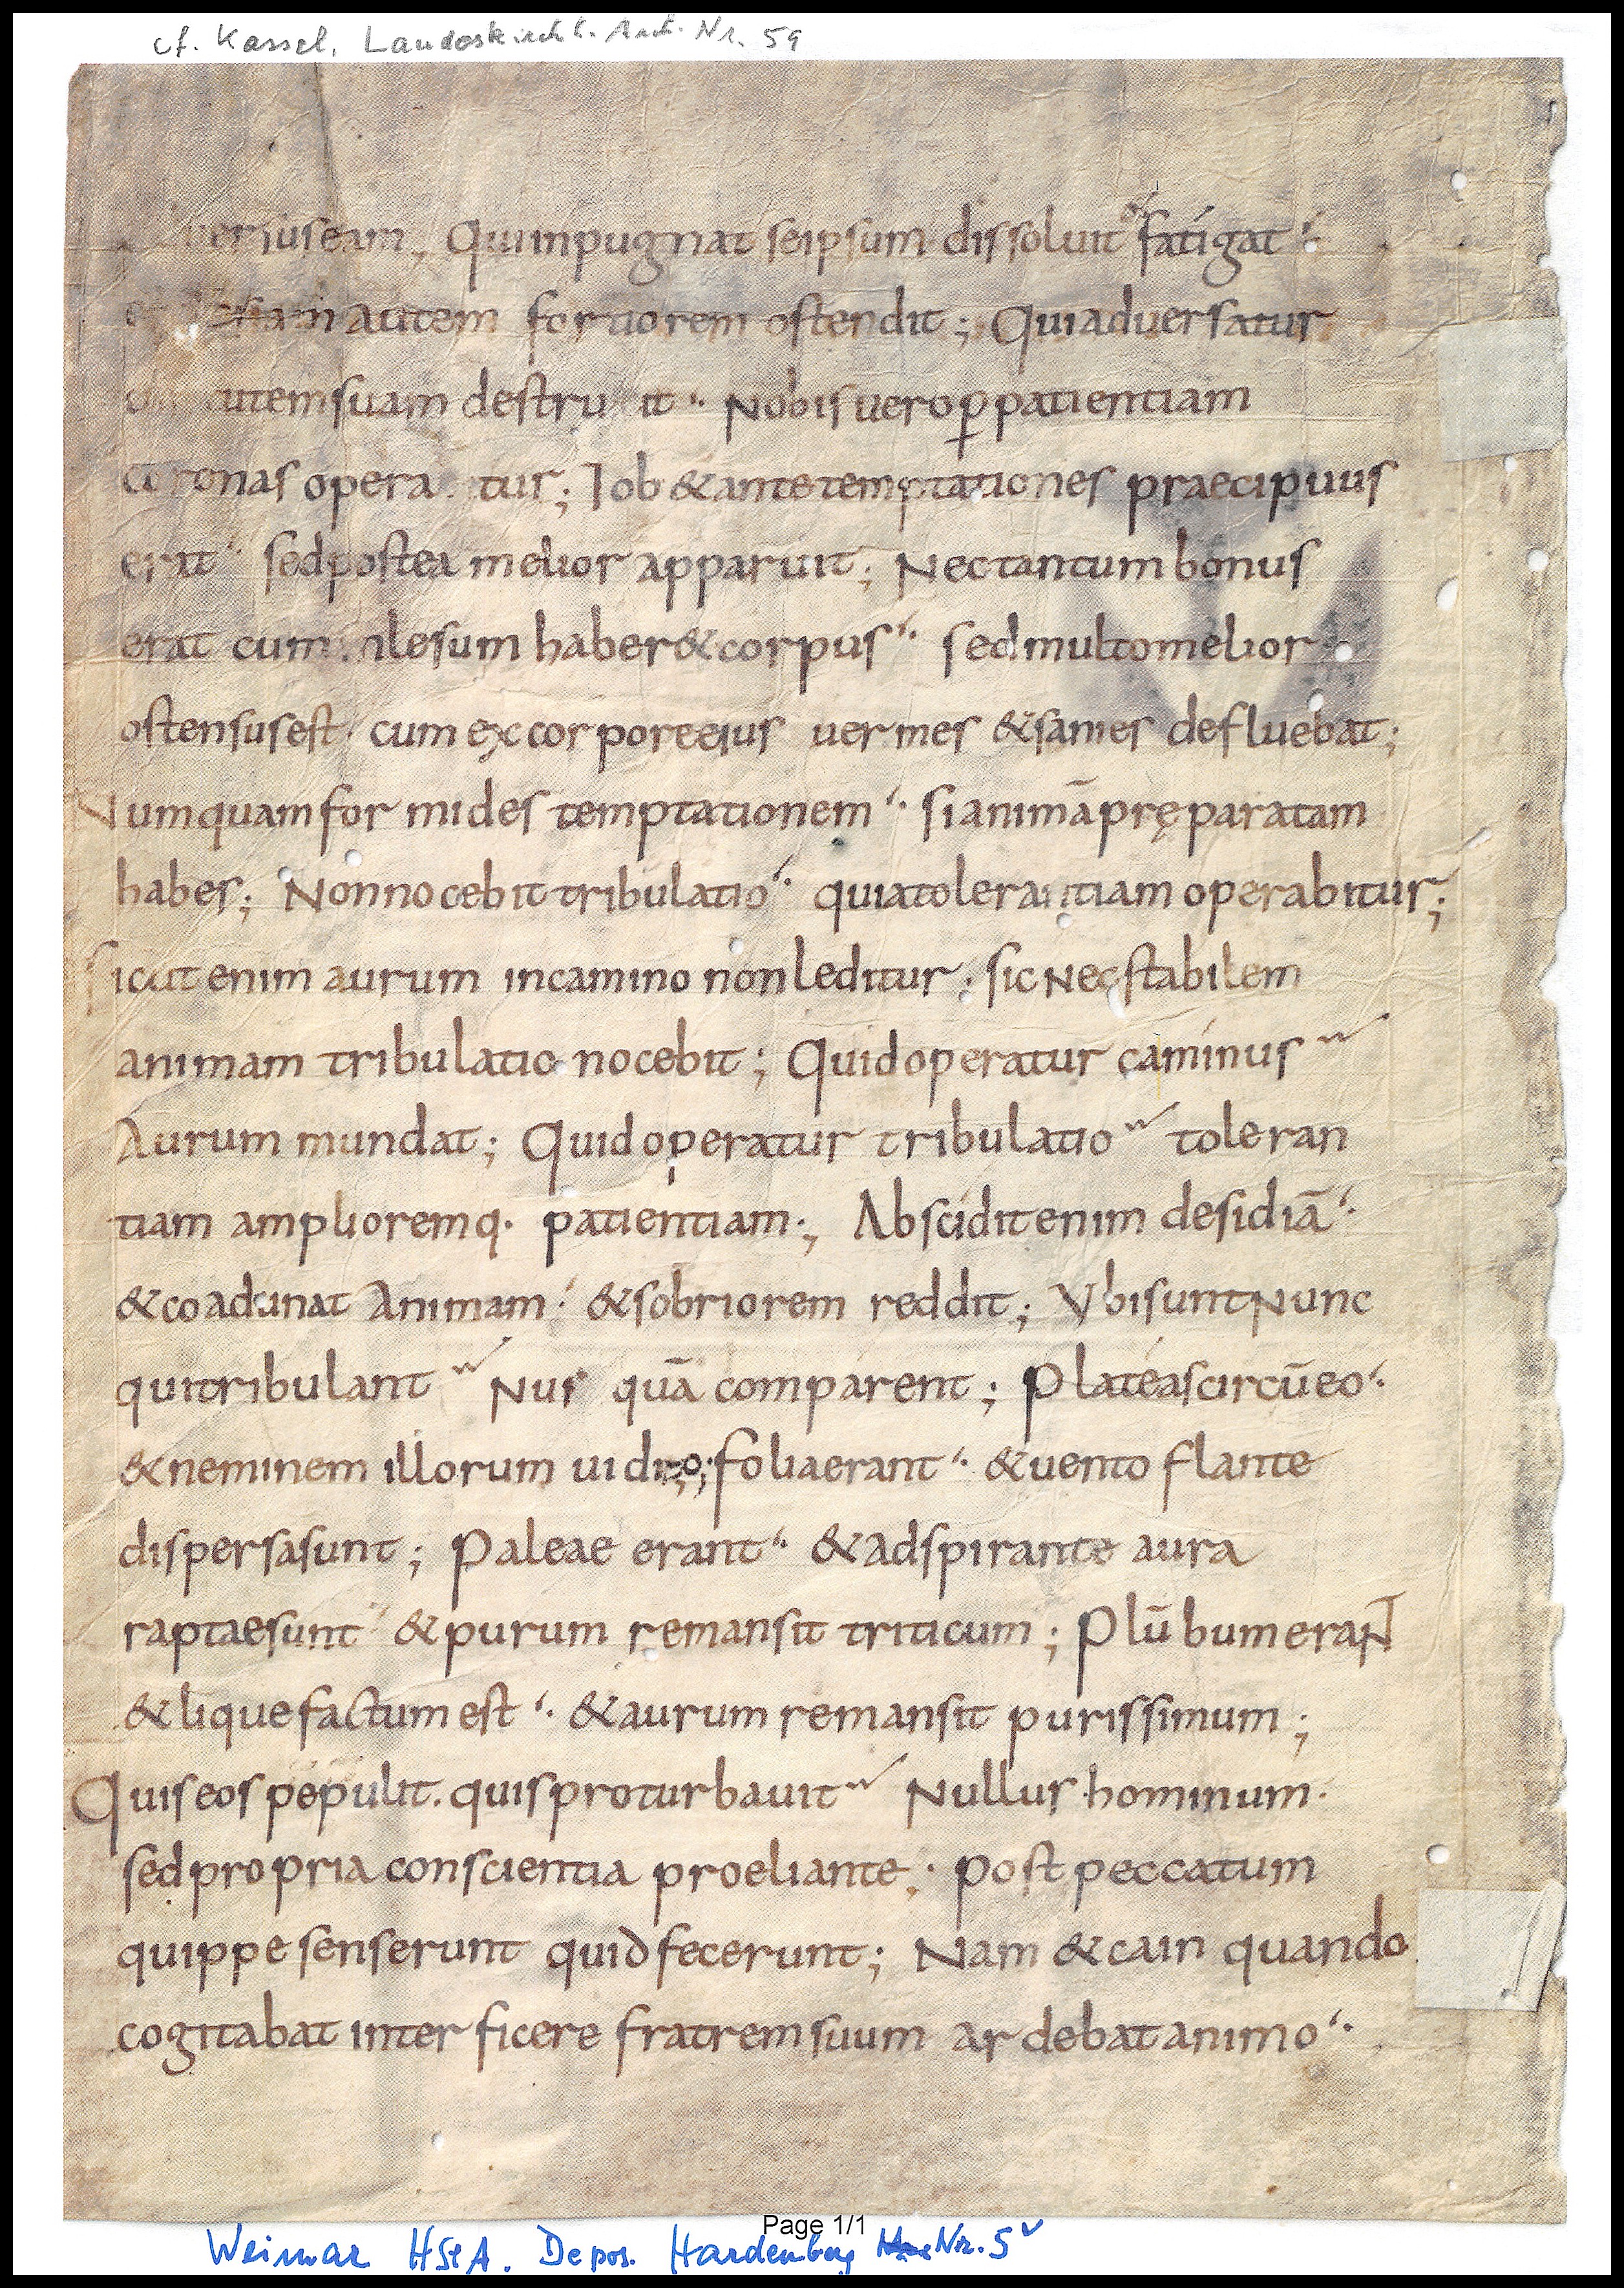 cf. Kassel, Landeskirchl. Arch. Nr. 59
uersus eam, Qui inpugnat seipsum dissoluit & fatigat
autem fortiorem ostendit; Qui aduersatur
utem suam destruit. Nobis uero ꝑ patientiam
coronas opera tur; Iob & ante temptationes praecipuus
erat. sed postea melior apparuit; Nec tantum bonus
erat cum inlesum haber& corpus. sed multo melior
ostensus est. cum ex corpore eius uermes & sanies defluebat;
Numquam formides temptationem. si animā pręparatam
habes; Non nocebit tribulatio. quia tolerantiam operabitur;
sicut enim aurum in camino non leditur. sic nec stabilem
animam tribulatio nocebit; Quid operatur caminus
Aurum mundat; Quid operatur tribulatio toleran
tiam amplioremq. patientiam; Abscidit enim desidiā.
& coadunat animam. & sobriorem reddit; Vbi sunt nunc
qui tribulant Nus quā comparent; Plateas circūeo.
& neminem illorum uideo; folia erant. & uento flante
dispersa sunt; Paleae erant. & adspirante aura
raptae sunt & purum remansit triticum; Plūbum erant
& liquefactum est. & aurum remansit purissimum;
Quis eos pepulit. quis proturbauit Nullus hominum.
sed propria conscientia proeliante. post peccatum
quippe senserunt quid fecerunt; Nam & cain quando
cogitabat interficere fratrem suum ardebat animo.
Page 1/1
Weimar HStA. Depos. Hardenberg Nr. 5v